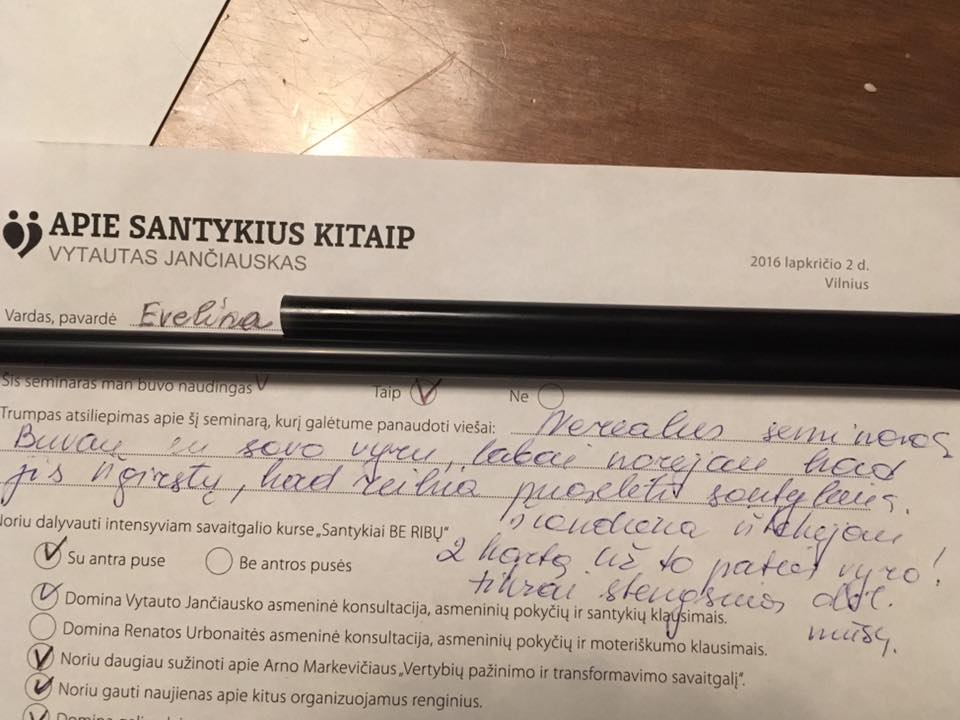 APIE SANTYKIUS KITAIP
VYTAUTAS JANČIAUSKAS
2016 lapkričio 2 d.
Vilnius
Vardas, pavardė Evelina
Šis seminaras man buvo naudingas Taip Ne
Trumpas atsiliepimas apie šį seminarą, kurį galėtume panaudoti viešai: Nerealus seminaras
Buvau su savo vyru, labai norėjau kad
jis išgirstų, kad reikia puoselėti santykius.
Šiandiena ištekėjau
2 kartą už to paties vyro!
tikrai stengsiuos dėl
mūsų.
Noriu dalyvauti intensyviam savaitgalio kurse „Santykiai BE RIBŲ“
Su antra puse Be antros pusės
Domina Vytauto Jančiausko asmeninė konsultacija, asmeninių pokyčių ir santykių klausimais.
Domina Renatos Urbonaitės asmeninė konsultacija, asmeninių pokyčių ir moteriškumo klausimais.
Noriu daugiau sužinoti apie Arno Markevičiaus „Vertybių pažinimo ir transformavimo savaitgalį“.
Noriu gauti naujienas apie kitus organizuojamus renginius.